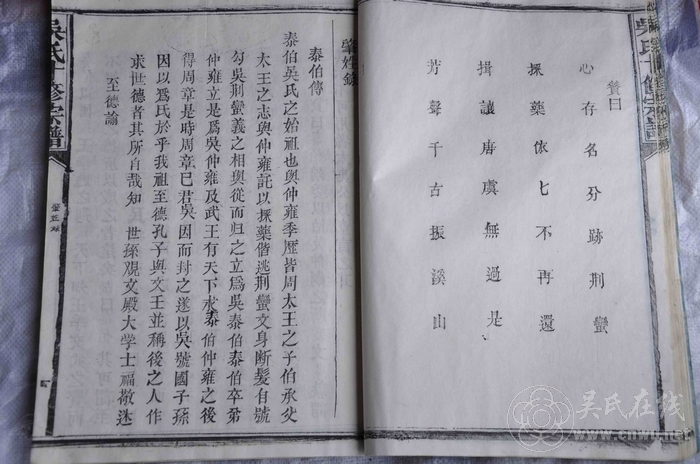 吳氏十修宗譜
贊曰
心存名分跡荆蠻
採藥依七不再還
揖讓唐虞無過是
芳聲千古振溪山
肇姓錄
泰伯傳
泰伯吳氏之始祖也與仲雍季歷皆周太王之子伯承父
太王之志與仲雍託以採藥偕逃荆蠻文身断髮自號
勾吳荆蠻義之相與從而归之立爲吳泰伯泰伯卒弟
仲雍立是爲吳仲雍及武王有天下求泰伯仲雍之後
得周章是時周章巳君吳因而封之遂以吳號國子孫
因以爲氏於乎我祖至德孔子與文王並稱後之人作
求世德者其所自哉知 世孫觀文殿大学士福敬述
至德論
吳氏十修宗譜
吴氏在线
www.cnwu.net